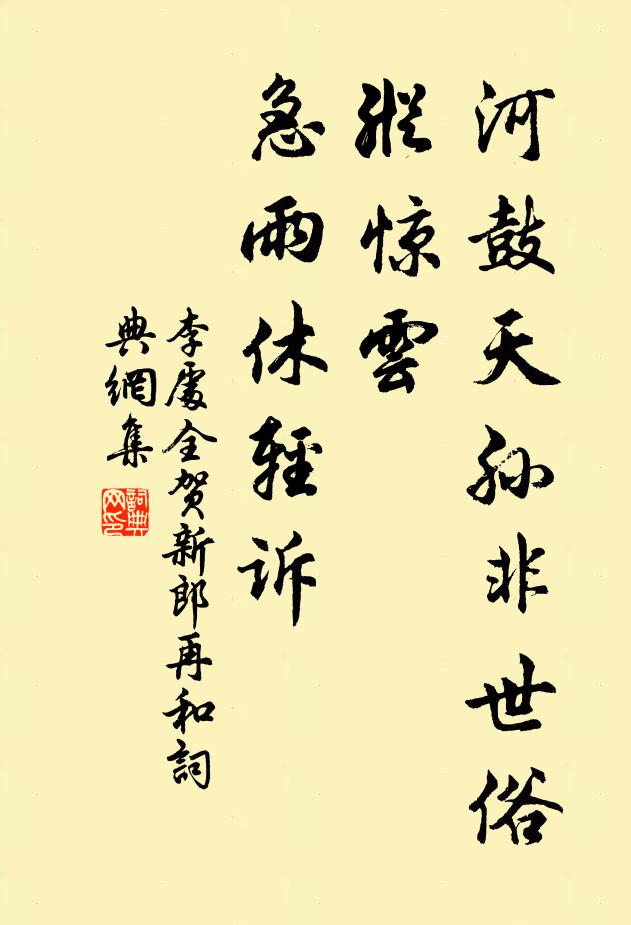 河鼓天孙非世俗
縱惊雲
急雨休輕訴
李處全贺新郎再和詞
典網集
詞典
网印